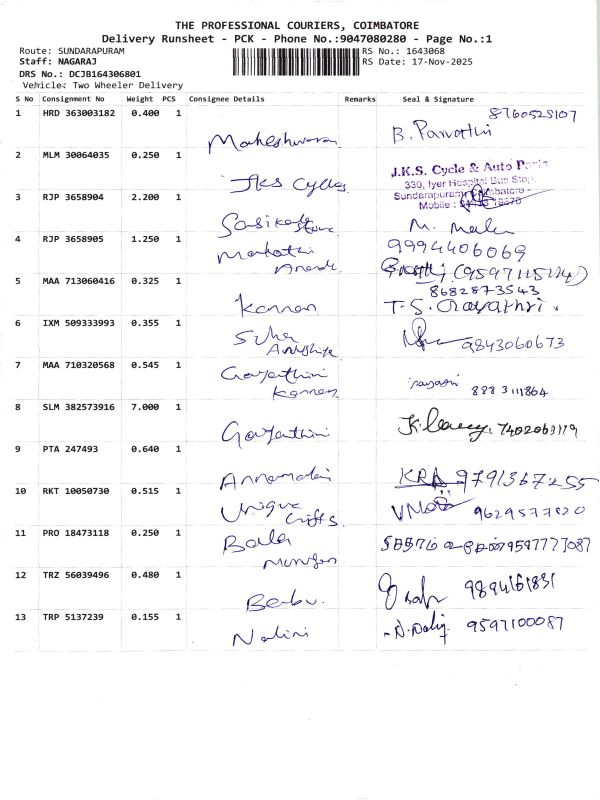 THE PROFESSIONAL COURIERS, COIMBATORE
Delivery Runsheet - PCK - Phone No.:9047080280 - Page No.:1
Route: SUNDARAPURAM RS No.: 1643068
Staff: NAGARAJ RS Date: 17-Nov-2025
DRS No.: DCJB164306801
Vehicle: Two Wheeler Delivery
S No Consignment No Weight PCS Consignee Details Remarks Seal & Signature
1 HRD 363003182 0.400 1 8760525107
Maheshwaran B. Parvathi
2 MLM 30064035 0.250 1
JKS Cycles J.K.S. Cycle & Auto Parts
330, Iyer Hospital Bus Stop,
Sundarapuram, Coimbatore -
Mobile :
3 RJP 3658904 2.200 1
Store M.
4 RJP 3658905 1.250 1 9994406069
5 MAA 713060416 0.325 1 8682873543
Kannan T-S. Gayathri.
6 IXM 509333993 0.355 1
Suha 9843060673
7 MAA 710320568 0.545 1
Gayathri
Kannan 8883111864
8 SLM 382573916 7.000 1
Gayathri 7402063179
9 PTA 247493 0.640 1
Annamalai KRA
10 RKT 10050730 0.515 1
Unique Gifts 9629577820
11 PRO 18473118 0.250 1
Bala 9597777087
Murugan
12 TRZ 56039496 0.480 1
Babu. 9894161831
13 TRP 5137239 0.155 1
Nalini 9597100087